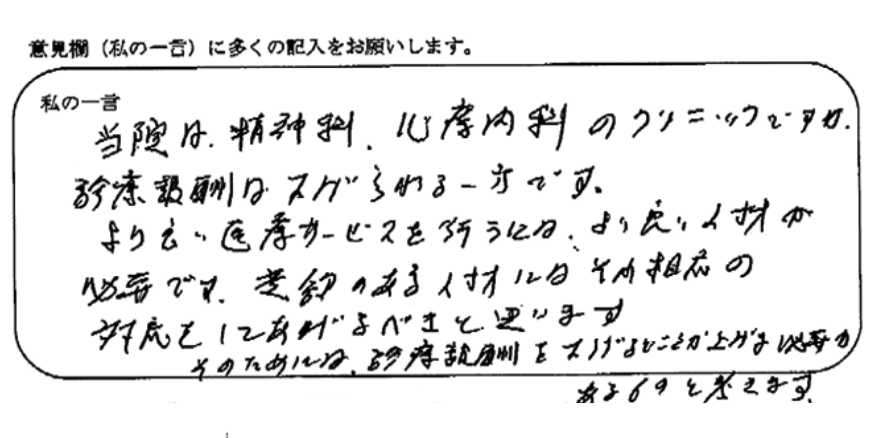 意見欄（私の一言）に多くの記入をお願いします。
私の一言
当院は、精神科、心療内科のクリニックですが、
診療報酬は下げられる一方です。
より良い医療サービスを行うには、より良い人材が
必要です。意欲のある人材にはそれ相応の
対応をしてあげるべきと思います
そのためには、診療報酬を下げるどころか上げる必要が
あるものと考えます